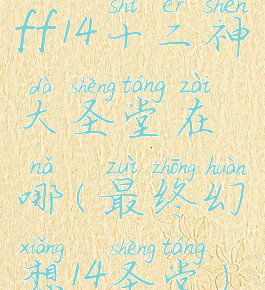 shí èr shén
ff14十二神
dà shèng táng zài
大圣堂在
nǎ zuì zhōng huàn
哪(最终幻
xiǎng shèng táng
想14圣堂)